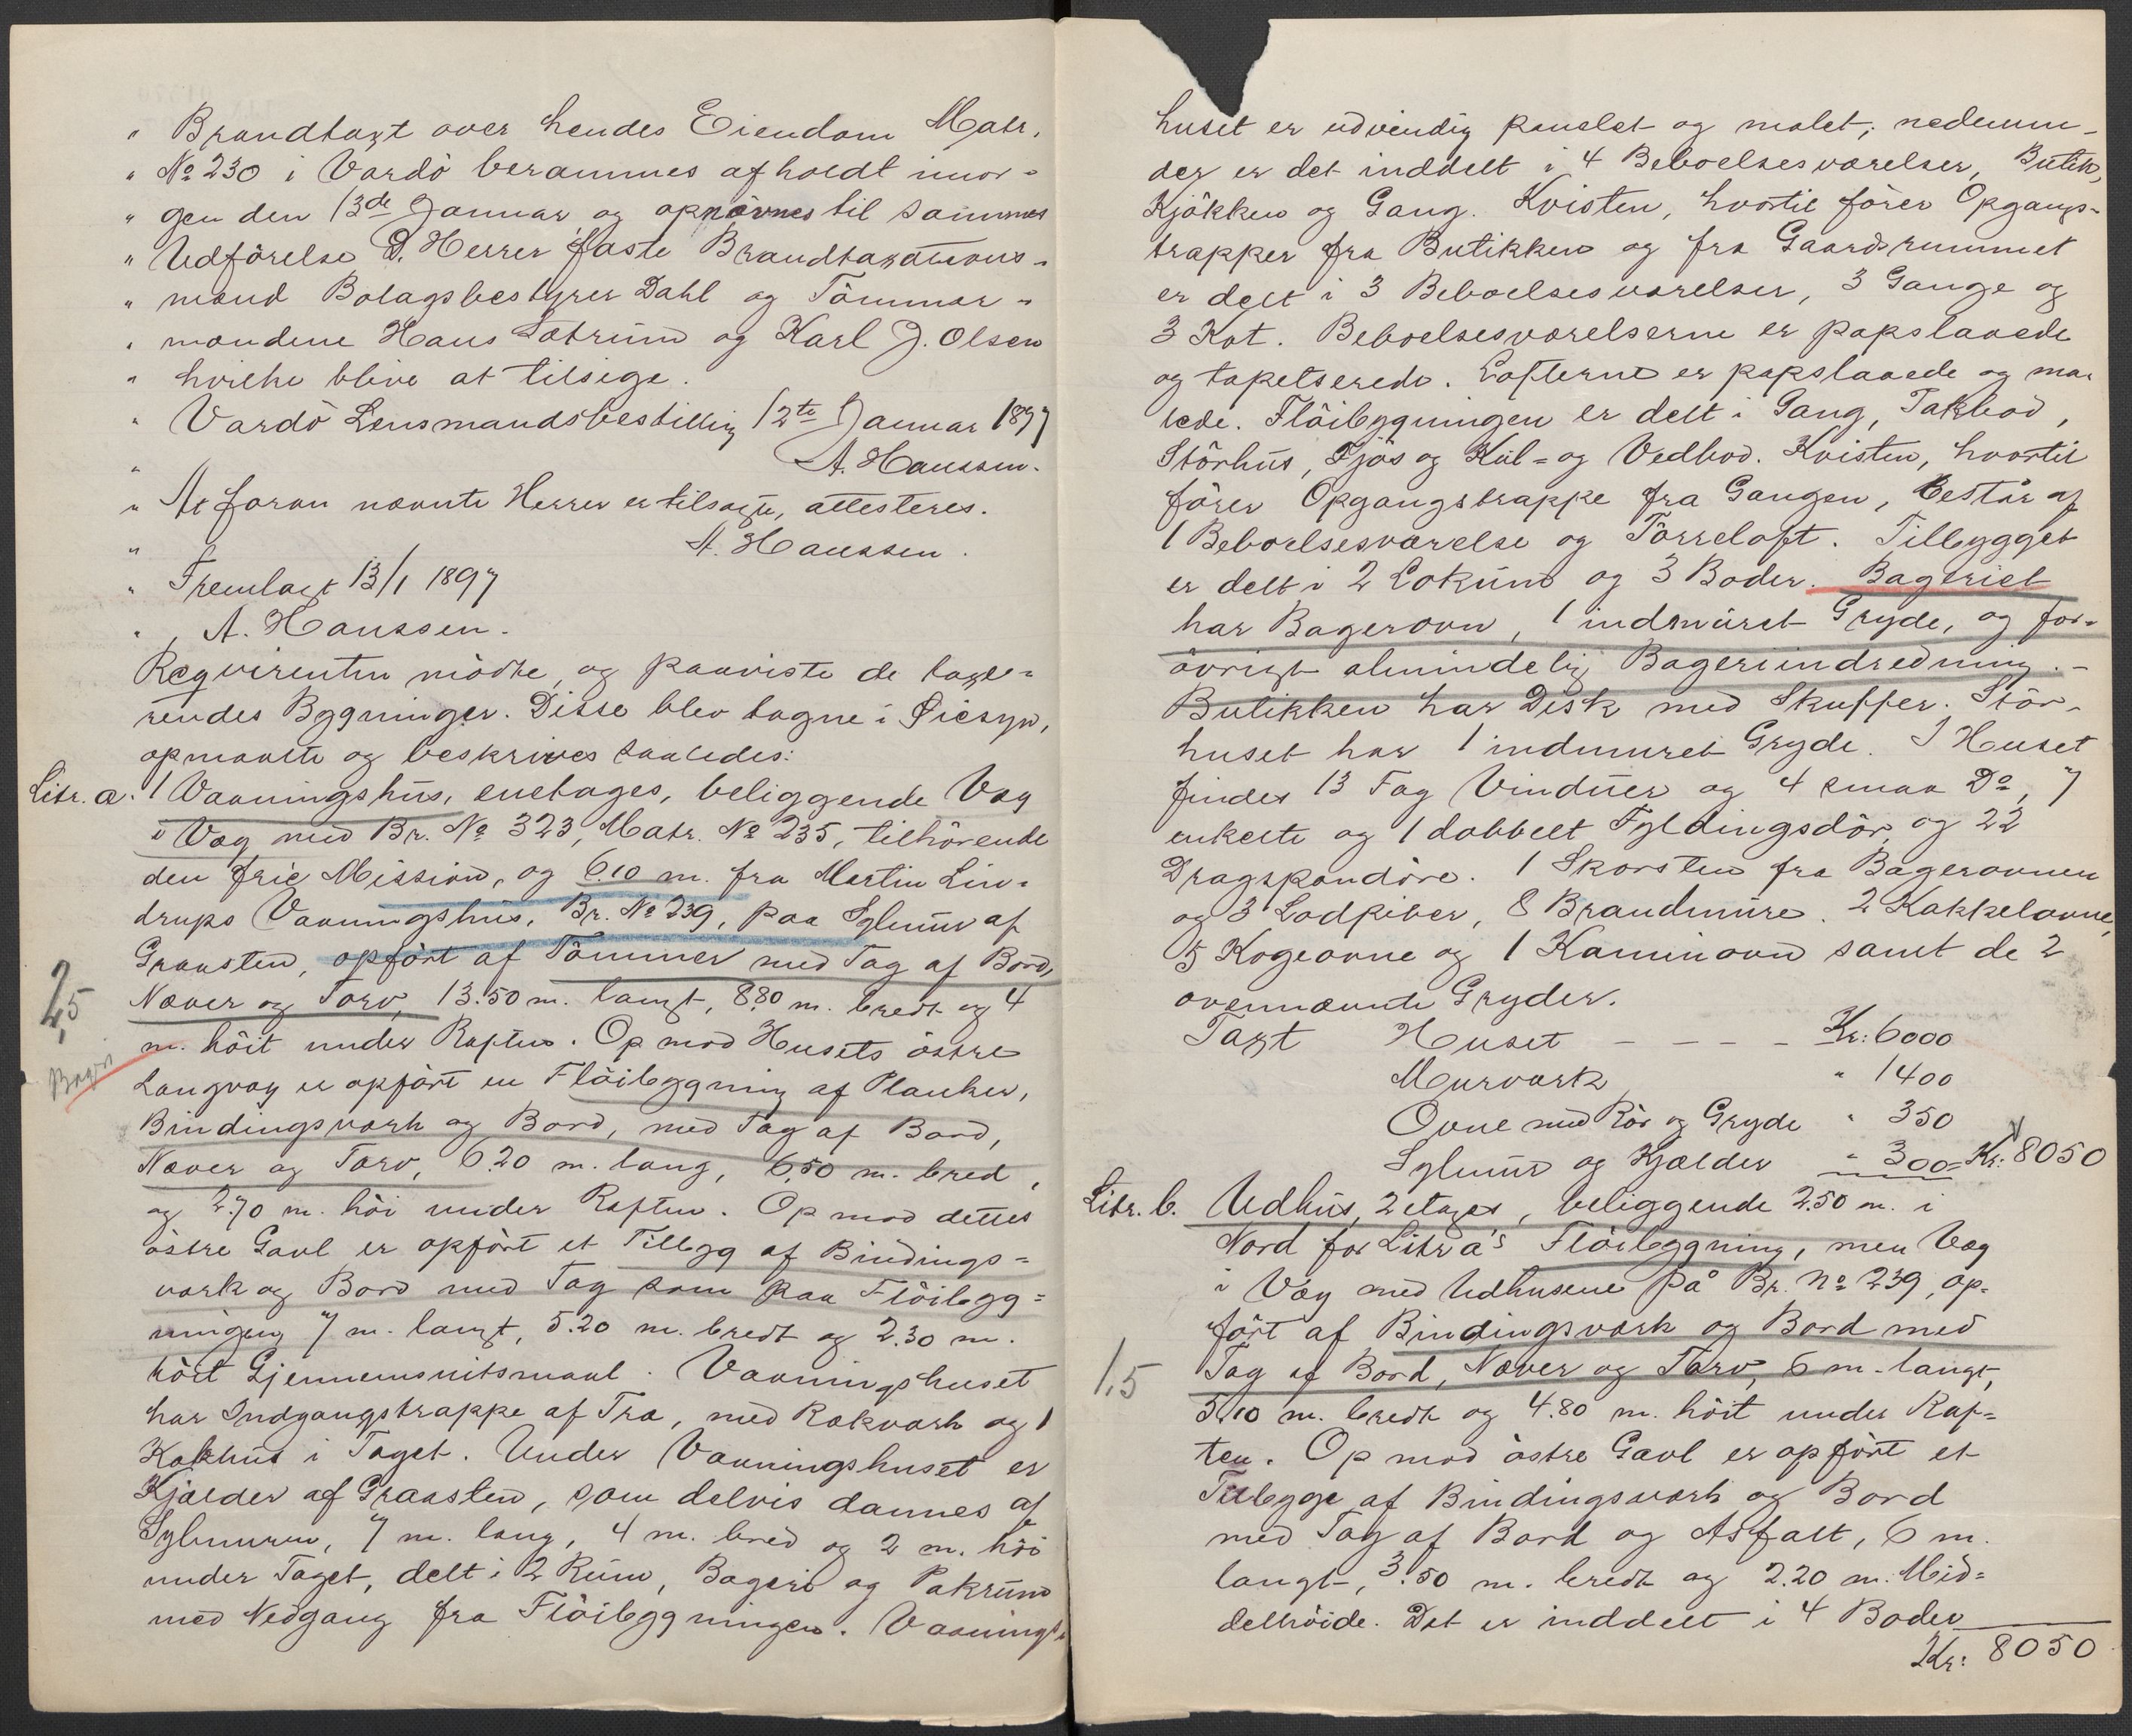 " Brandtaxt over hendes Eiendom Matr.
" No 230 i Vardö berammes afholdt imor=
" gen den 13de Januar, og opnævnes til sammes
" Udförelse D. Herrer faste Brandtaxations-
" mænd Bolagsbestyrer Dahl og Tömmer-
" mændene Hans Sætrum og Karl J. Olsen
" hvilke blive at tilsige.
" Vardö Lensmandsbestilling 12te Januar 1897
" A. Hanssen.
" At foran nævnte Herrer er tilsagte, attesteres.
" A. Hanssen.
" Fremlagt 13/1 1897
" A. Hanssen.
Reqvirenten mödte, og paaviste de taxe=
rendes Bygninger. Disse blev tagne i Öiesyn,
opmaalte og beskrives saaledes:
Litr. a. 1 Vaaningshus, enetages, beliggende Væg
i Væg med Br. No 323, Matr. No 235, tilhörende
den frie Mission, og 6.10 m. fra Martin Lin-
drups Vaaningshus, Br. No 239, paa Sylmur af
Graasten, opfört af Tömmer med Tag af Bord,
2,5
Næver og Torv, 13.50 m. langt, 8.80 m. bredt og 4
m. höit under Raften. Op mod Husets östre
Langvæg er opfört en Flöibygning af Planker,
Bindingsværk og Bord, med Tag af Bord,
Næver og Torv, 6.20 m. lang, 6.50 m. bred,
og 2.70 m. höi under Raften. Op mod dettes
östre Gavl er opfört et Tilbyg af Bindings=
værk og Bord med Tag som paa Flöibyg=
ningen 7 m. langt, 5.20 m. bredt og 2.30 m.
höit Gjennemsnitsmaal. Vaaningshuset
har Indgangstrappe af Træ, med Rækværk og 1
Kakhus i Taget. Under Vaaningshuset er
Kjælder af Graasten, som delvis dannes af
Sylmuren, 7 m. lang, 4 m. bred og 2 m. höi
under Taget, delt i 2 Rum, Bageri og Pakrum
med Nedgang fra Flöibygningen. Vaanings=
huset er udvendig panelet og malet; nedenun-
der er det inddelt i 4 Beboelsesværelser, Butik,
Kjökken og Gang. Kvisten, hvortil förer Opgangs-
trapper fra Butikken og fra Gaardsrummet
er delt i 3 Beboelsesværelser, 3 Gange og
3 Kot. Beboelsesværelserne er papslaaede
og tapetserede. Lofterne er papslaaede og ma-
lede. Flöibygningen er delt i Gang, Pakbod,
Störhus, Fjös og Kul= og Vedbod. Kvisten, hvortil
förer Opgangstrappe fra Gangen, består af
1 Beboelsesværelse og Törreloft. Tilbygget
er delt i 2 Lokum og 3 Boder. Bageriet
har Bagerovn, 1 indmuret Gryde, og for=
övrigt almindelig Bageriindredning. -
Butikken har Disk med Skuffer. Stör-
huset har 1 indmuret Gryde. I Huset
findes 13 Fag Vinduer og 4 smaa Do, 7
enkelte og 1 dobbelt Fyldingsdör, og 22
Dragspandöre. 1 Skorsten fra Bagerovnen
og 3 Lodpiber, 8 Brandmure. 2 Kakkelovne,
5 Kogeovne og 1 Kaminovn samt de 2
ovennævnte Gryder.
Taxt Huset - - - - Kr: 6000
Murværk " 1400
Ovne med Rör og Gryde " 350
Sylmur og Kjælder " 300= Kr: 8050
Litr. b. Udhus, 2 etages, beliggende 2.50 m. i
Nord for Litr a's Flöibygning, men Væg
i Væg med Udhusene på Br. No 239, op-
fört af Bindingsværk og Bord med
1,5 Tag af Bord, Næver og Torv, 6 m. langt,
5.10 m. bredt og 4.80 m. höit under Raf=
ten. Op mod östre Gavl er opfört et
Tilbygge af Bindingsværk og Bord
med Tag af Bord og Asfalt, 6 m.
langt, 3.50 m. bredt og 2.20 m. Mid=
delhöide. Det er inddelt i 4 Boder
Kr: 8050